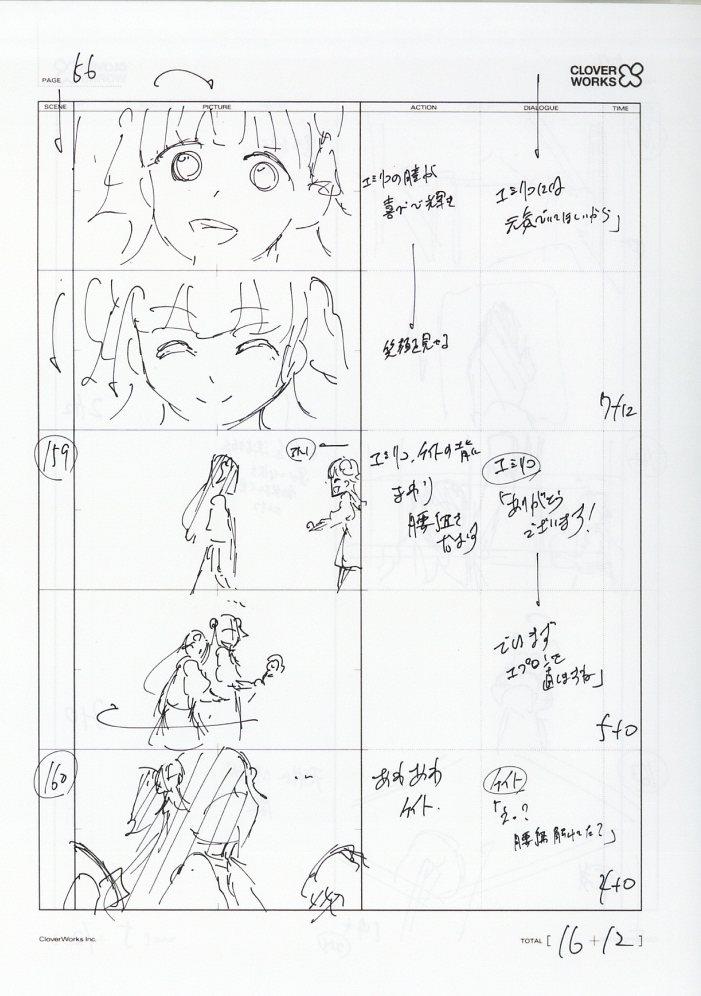 PAGE 56
CLOVER
WORKS
SCENE PICTURE ACTION DIALOGUE TIME
エミリコの瞳が
喜びで輝く
エミリコには
元気でいてほしいから」
笑顔を見せる
7+12
159
エミリコ、ケイトの背に
まわり
腰紐を
なおす
エミリコ
「ありがとう
ございます!
でいます
エプロンを
直しますね」
5+0
160
あわあわ
ケイト.
ケイト
「え。?
腰紐解けてた?」
4+0
CloverWorks Inc.
TOTAL [ 16+12 ]